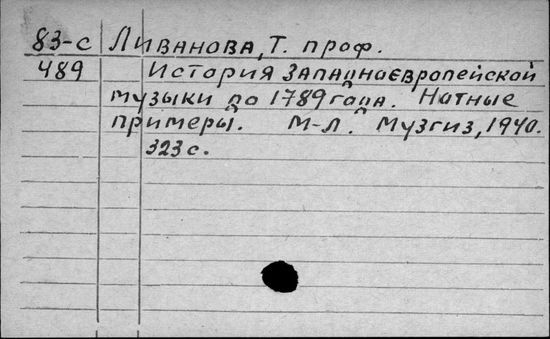 83-с Ливанова, Т. проф.
489 История западноевропейской
музыки до 1789 года. Нотные
примеры. М-Л. Музгиз, 1940.
323 с.